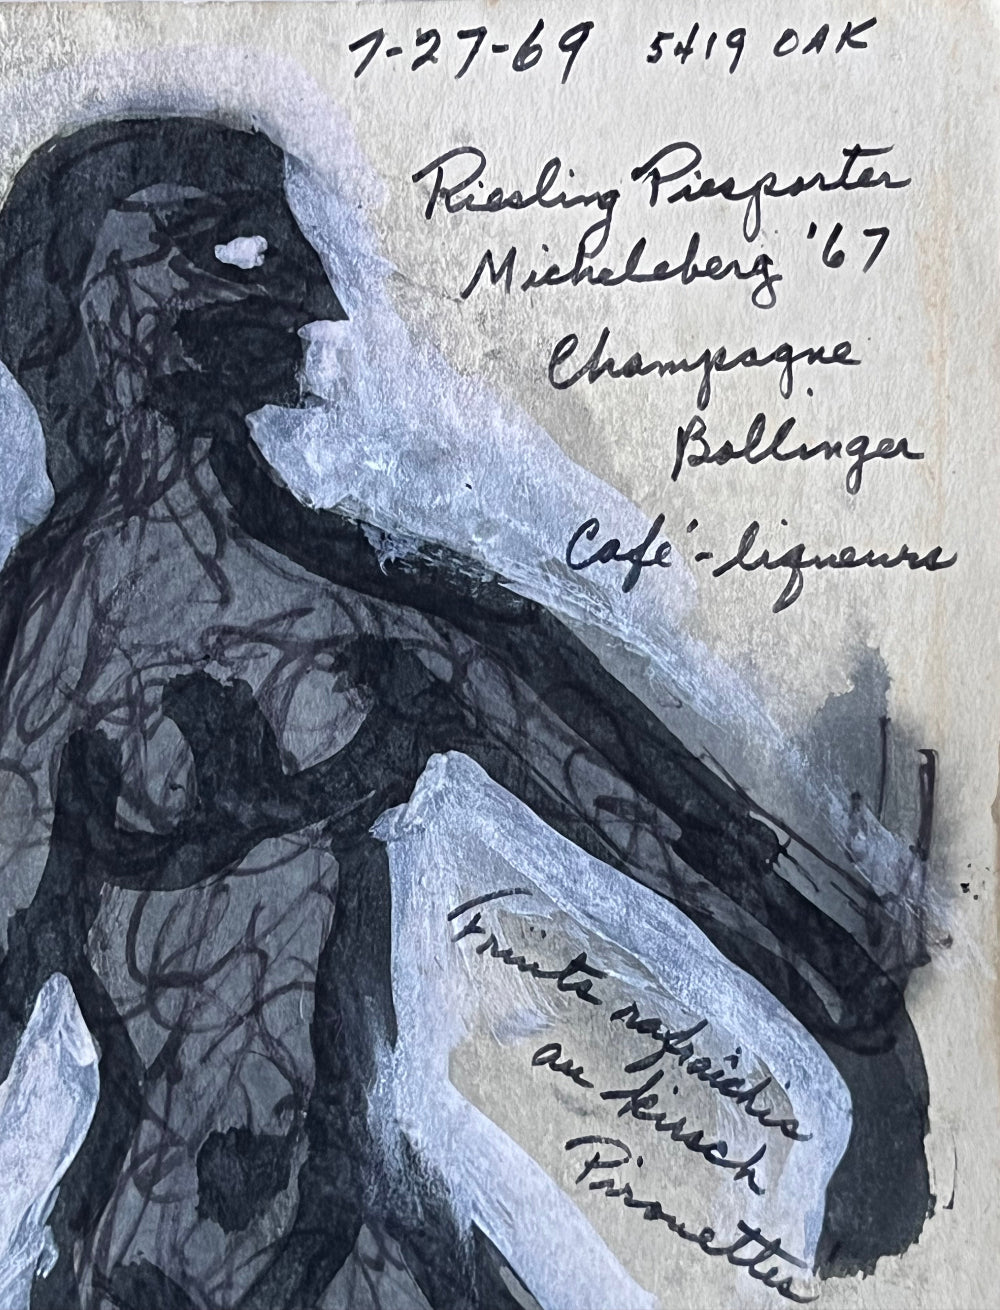 7-27-69 5419 OAK
Riesling Piesporter
Michelsberg '67
Champagne
Bollinger
Café-liqueurs
Fruits rafraîchis
au kirsch
Pirouettes